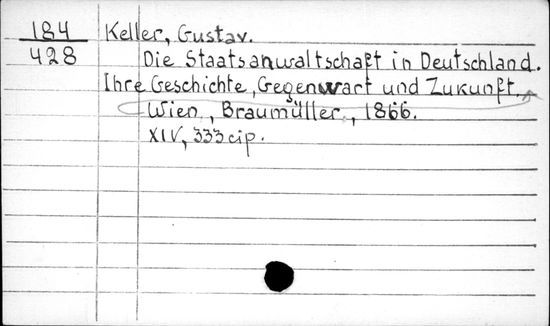 184 Keller, Gustav.
428 Die Staatsanwaltschaft in Deutschland.
Ihre Geschichte, Gegenwart und Zukunft.
Wien, Braumüller, 1866.
XIV, 333 cip.